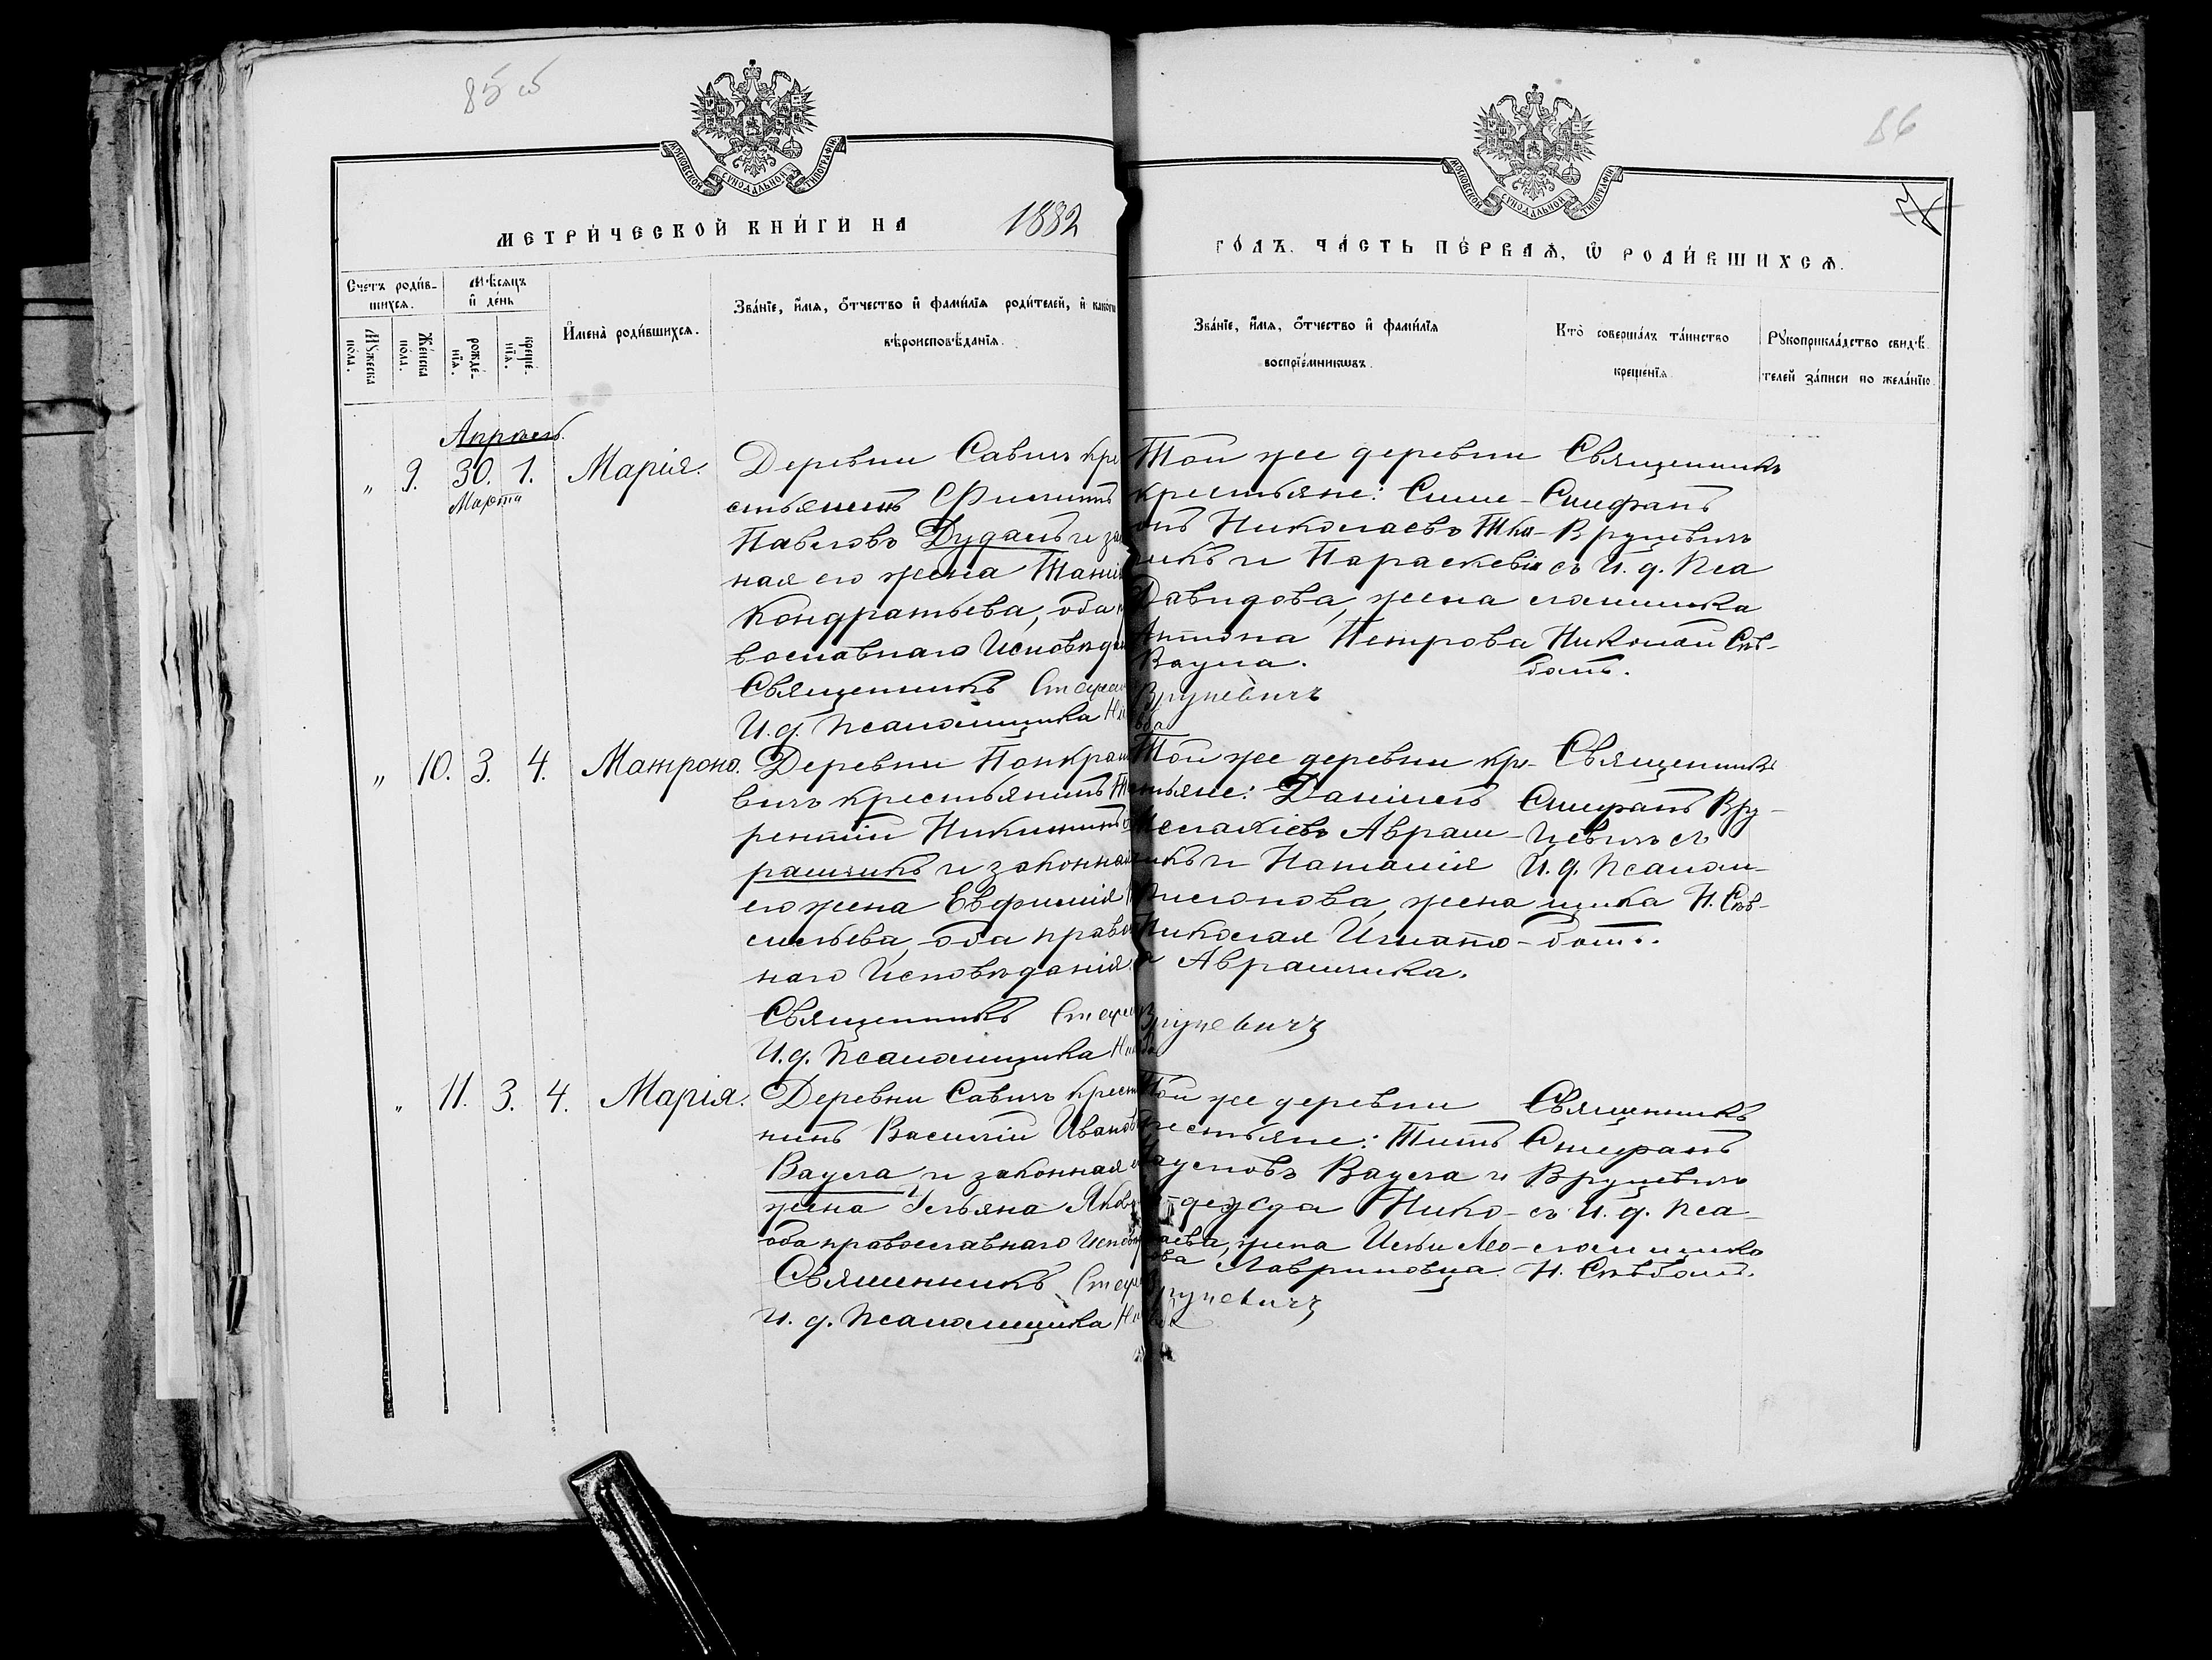 85 об
86
МОСКОВСКОЙ СѴНОДАЛЬНОЙ ТИПОГРАФІИ
МОСКОВСКОЙ СѴНОДАЛЬНОЙ ТИПОГРАФІИ
МЕТРИ́ЧЕСКОЙ КНИ́ГИ НА 1882
ГО́ДЪ. ЧА́СТЬ ПЕ́РВАѦ, Ѡ҆ РОДИ́ВШИХСѦ.
Счетъ роди́в-
шихсѧ.
Мꙋжеска по́ла.
Же́нска по́ла.
Мѣсѧцъ
и҆ де́нь
рожде́-
нїѧ.
креще́-
нїѧ.
И҆мена̀ роди́вшихсѧ.
Зва́нїе, и҆́мѧ, ѻ҆́тчество и҆ фами́лїѧ роди́телей, и҆ како́гѡ
вѣроисповѣ́данїѧ.
Зва́нїе, и҆́мѧ, ѻ҆́тчество и҆ фами́лїѧ
воспрїе́мникѡвъ.
Кто̀ соверша́лъ та́инство
креще́нїѧ
Рꙋкоприкла́дство свидѣ́-
телей за́писи по жела́нїю.
Апрѣль.
" 9. 30. 1. Марія.
Марта
Деревни Савичъ кре
стьянинъ Филиппъ
Павловъ Дудаль и за
ная его жена Татія
Кондратьева, оба
вославнаго Исповѣдан
Священникъ Стефан
И. д. Псаломщика Ни
Той же деревни
крестьяне: Симе-
онъ Николаевъ Тка-
чикъ и Параскевія
Давидова, жена
Антона Петрова
Ваула.
Вруцевичъ
Священникъ
Стефанъ
Вруцевичъ
съ И. д. Пса
ломщика
Николай Скв-
" 10. 3. 4. Матрона.
Деревни Панкрат
вичъ крестьянинъ Те
рентій Никитинъ
рамчикъ и законная
его жена Евфимія
сильева, оба право
наго Исповѣданія
Священникъ Стефан
И. д. Псаломщика Ни
Той же деревни кре-
стьяне: Даніилъ
Авраш-
чикъ и Наталія
жена
Николая Игнато-
а Аврамчика.
Вруцевичъ
Священникъ
Стефанъ Вру-
цевичъ съ
И. д. Псалом-
щика Н. Скв-
" 11. 3. 4. Марія.
Деревни Савичъ крест
нинъ Василій Иванов
Ваула и законная
жена Ульяна Яков
оба православнаго Исповѣ
Священникъ Стефан
И. д. Псаломщика Ни
Той же деревни
крестьяне: Титъ
Ваула и
Нико-
лаева, жена Ильи Ло-
Вруцевичъ
Священникъ
Стефанъ
Вруцевичъ
съ И. д. Пса-
ломщика